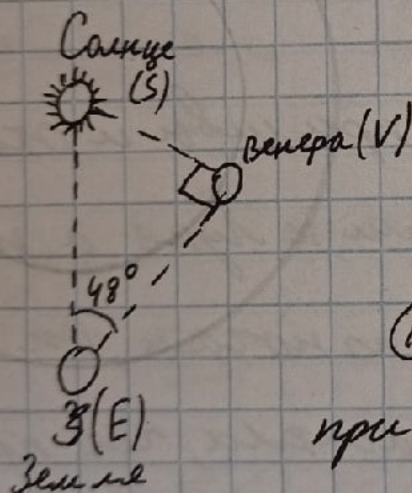 Солнце
(S)
Венера (V)
48°
З(E)
Земля
при